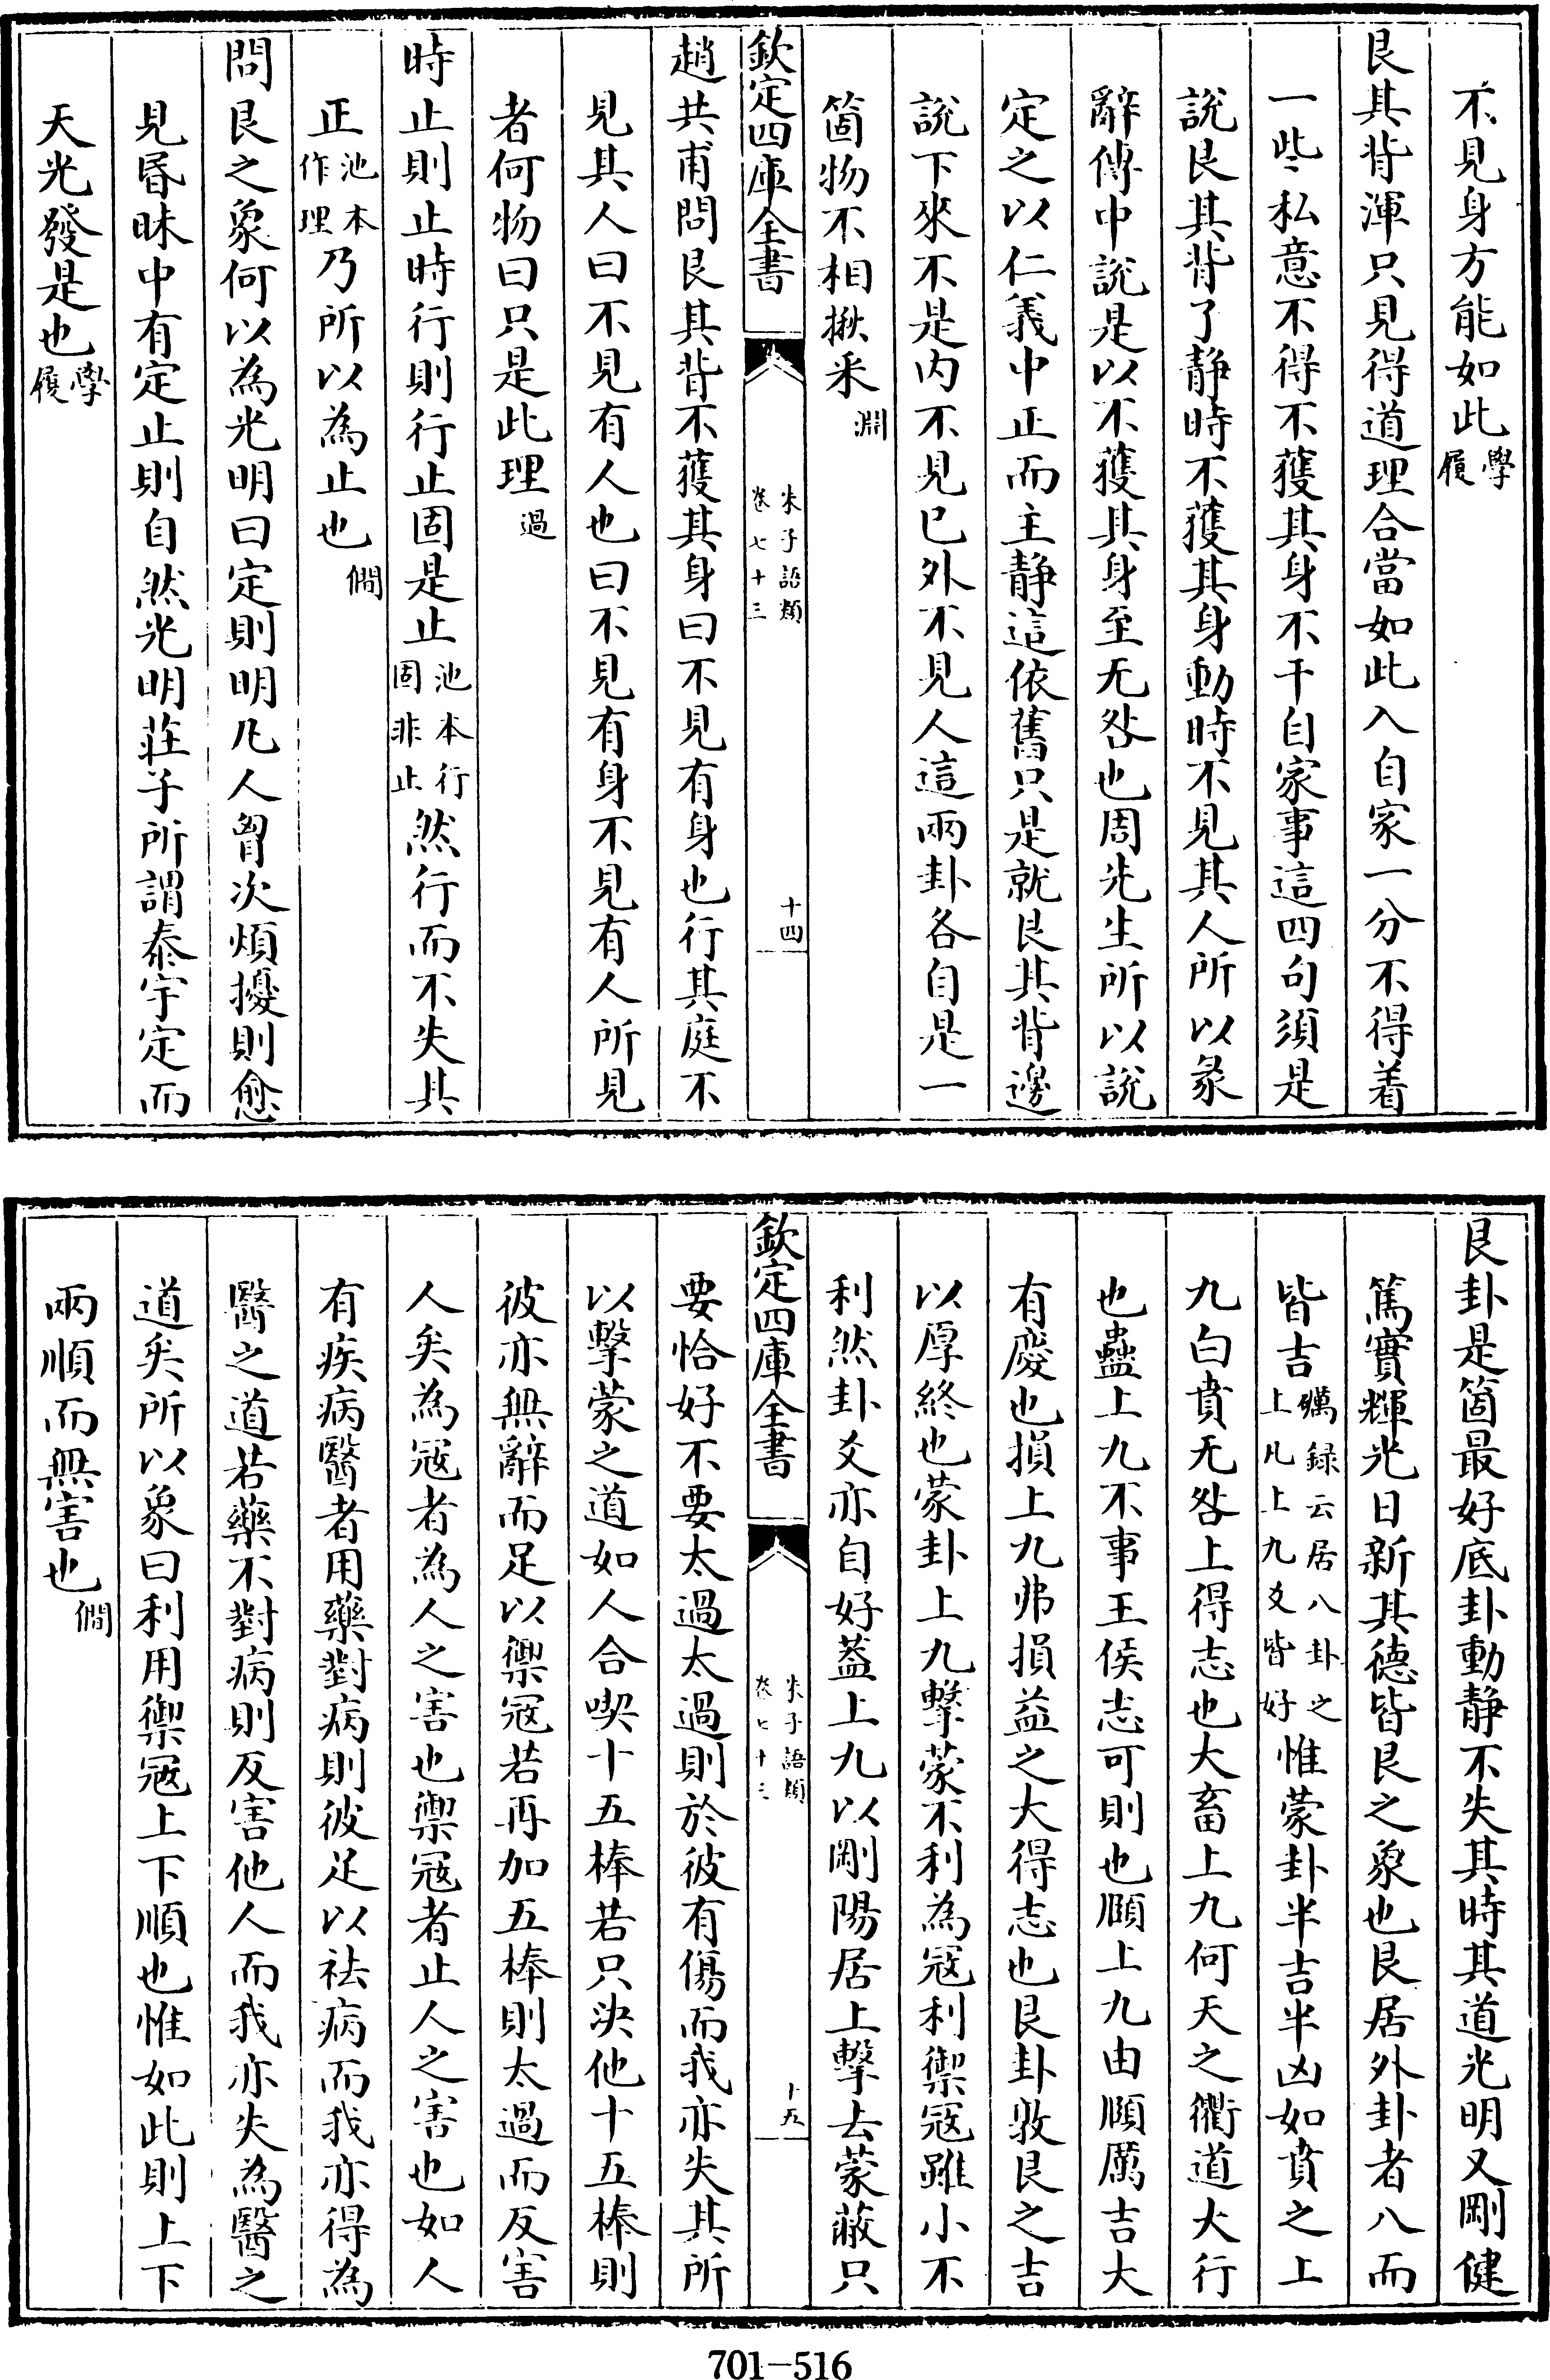 不見身方能如此學履
艮其背渾只見得道理合當如此入自家一分不得着
一些私意不得不獲其身不干自家事這四句須是
說艮其背了静時不獲其身動時不見其人所以彖
辭傳中說是以不獲其身至无咎也周先生所以說
定之以仁義中正而主静這依舊只是就艮其背邊
說下來不是内不見已外不見人這兩卦各自是一
箇物不相揪采淵
欽定四庫全書 朱子語類卷七十三 十四
趙共甫問艮其背不獲其身曰不見有身也行其庭不
見其人曰不見有人也曰不見有身不見有人所見
者何物曰只是此理過
時止則止時行則行行止固是止池本行固非止然行而不失其
正池本作理乃所以為止也僩
問艮之象何以為光明曰定則明凡人胷次煩擾則愈
見昏昧中有定止則自然光明莊子所謂泰宇定而
天光發是也學履
艮卦是箇最好底卦動静不失其時其道光明又剛健
篤實輝光日新其德皆艮之象也艮居外卦者八而
皆吉礪録云居八卦之上凡上九爻皆好惟蒙卦半吉半凶如賁之上
九白賁无咎上得志也大畜上九何天之衢道大行
也蠱上九不事王侯志可則也頤上九由頤厲吉大
有慶也損上九弗損益之大得志也艮卦敦艮之吉
以厚終也蒙卦上九擊蒙不利為冦利禦冦雖小不
利然卦爻亦自好葢上九以剛陽居上擊去蒙蔽只
欽定四庫全書 朱子語類卷七十三 十五
要恰好不要太過太過則於彼有傷而我亦失其所
以擊蒙之道如人合喫十五棒若只決他十五棒則
彼亦無辭而足以禦冦若再加五棒則太過而反害
人矣為冦者為人之害也禦冦者止人之害也如人
有疾病醫者用藥對病則彼足以祛病而我亦得為
醫之道若藥不對病則反害他人而我亦失為醫之
道矣所以象曰利用禦冦上下順也惟如此則上下
兩順而無害也僩
701-516